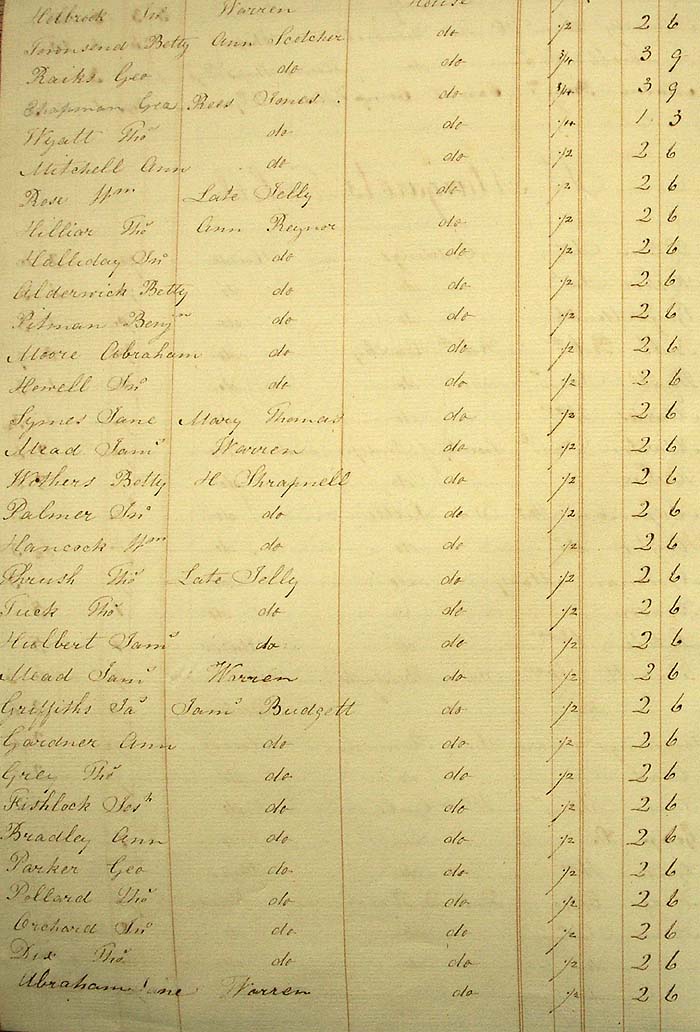 Holbrook Jnº Warren House 1/2 2 6
Townsend Betty Ann Scotcher do 1/2 2 6
Raiks Geo do do 3/4 3 9
Chapman Geo Rees Jones do 3/4 3 9
Wyatt Thº do do 1/4 1 3
Mitchell Ann do do 1/2 2 6
Rose Wm Late Jelly do 1/2 2 6
Hilliar Thº Ann Reynor do 1/2 2 6
Halliday Jnº do do 1/2 2 6
Alderwick Betty do do 1/2 2 6
Pitman Benjn do do 1/2 2 6
Moore Abraham do do 1/2 2 6
Howell Jnº do do 1/2 2 6
Symes Jane Mary Thomas do 1/2 2 6
Mead Jams Warren do 1/2 2 6
Withers Betty H Shrapnell do 1/2 2 6
Palmer Jnº do do 1/2 2 6
Hancock Wm do do 1/2 2 6
Thrush Thº Late Jelly do 1/2 2 6
Tuck Thº do do 1/2 2 6
Hulbert Jams do do 1/2 2 6
Mead Jams Warren do 1/2 2 6
Griffiths Jas Jams Budgett do 1/2 2 6
Gardner Ann do do 1/2 2 6
Grey Thº do do 1/2 2 6
Fishlock Josh do do 1/2 2 6
Bradley Ann do do 1/2 2 6
Parker Geo do do 1/2 2 6
Pollard Thº do do 1/2 2 6
Orchard Jnº do do 1/2 2 6
Dix Thº do do 1/2 2 6
Abraham Jane Warren do 1/2 2 6